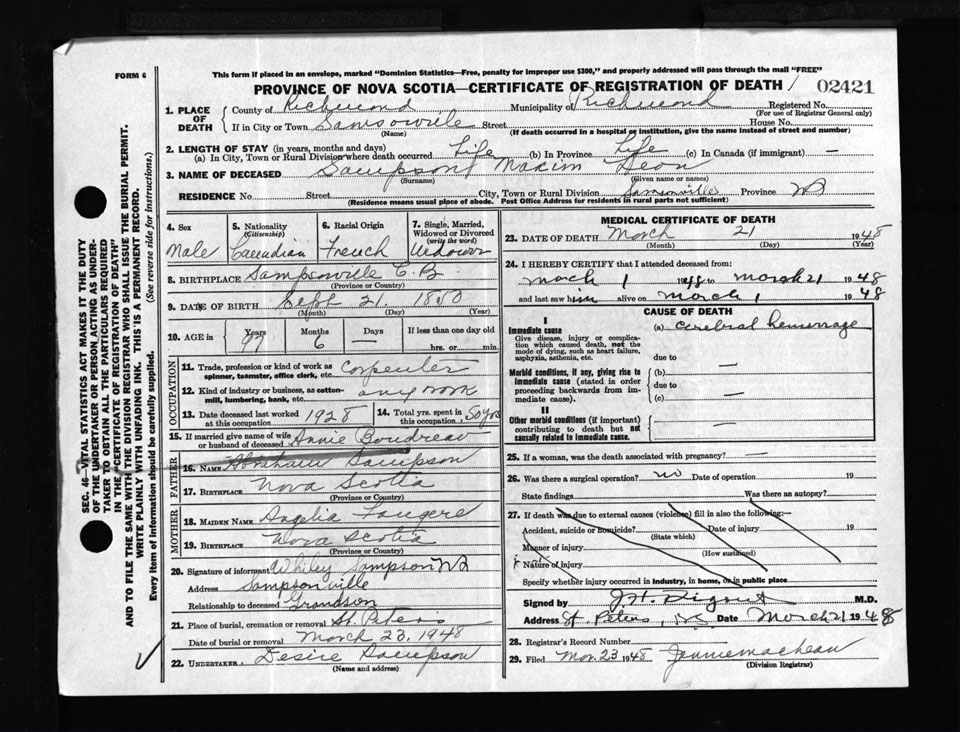 FORM 6
This form if placed in an envelope, marked "Dominion Statistics—Free, penalty for improper use $300," and properly addressed will pass through the mail "FREE"
PROVINCE OF NOVA SCOTIA—CERTIFICATE OF REGISTRATION OF DEATH / 02421
1. PLACE OF DEATH
County of Richmond Municipality of Richmond Registered No.
(For use of Registrar General only)
If in City or Town Samsonville Street House No.
(Name) (If death occurred in a hospital or institution, give the name instead of street and number)
2. LENGTH OF STAY (in years, months and days)
(a) In City, Town or Rural Division where death occurred Life (b) In Province Life (c) In Canada (if immigrant) —
3. NAME OF DECEASED Sampson Maxim Leon
(Surname) (Given name or names)
RESIDENCE No. Street City, Town or Rural Division Samsonville Province NS
(Residence means usual place of abode. Post Office Address for residents in rural parts not sufficient)
4. Sex
Male
5. Nationality
(Citizenship)
Canadian
6. Racial Origin
French
7. Single, Married, Widowed or Divorced
(write the word)
Widower
8. BIRTHPLACE Sampsonville C.B
(Province or Country)
9. DATE OF BIRTH Sept 21 1850
(Month) (Day) (Year)
10. AGE in
Years 97
Months 6
Days —
If less than one day old
hrs. or min.
OCCUPATION
11. Trade, profession or kind of work as spinner, teamster, office clerk, etc. Carpenter
12. Kind of industry or business, as cotton-mill, lumbering, bank, etc. any work
13. Date deceased last worked at this occupation 1928
14. Total yrs. spent in this occupation 50 yrs
15. If married give name of wife or husband of deceased Annie Boudreau
FATHER
16. NAME Abraham Sampson
17. BIRTHPLACE Nova Scotia
(Province or Country)
MOTHER
18. MAIDEN NAME Angelia Fougere
19. BIRTHPLACE Nova Scotia
(Province or Country)
20. Signature of informant Whiley Sampson NS
Address Sampsonville
Relationship to deceased Grandson
21. Place of burial, cremation or removal St. Peters
Date of burial or removal March 23, 1948
22. UNDERTAKER Desire Sampson
(Name and address)
MEDICAL CERTIFICATE OF DEATH
23. DATE OF DEATH March 21 1948
(Month) (Day) (Year)
24. I HEREBY CERTIFY that I attended deceased from:
March 1 1948 to March 21 1948
and last saw him alive on March 1 1948
CAUSE OF DEATH
I
Immediate cause
Give disease, injury or complication which caused death, not the mode of dying, such as heart failure, asphyxia, asthenia, etc.
(a) cerebral hemorrage
due to
Morbid conditions, if any, giving rise to immediate cause (stated in order proceeding backwards from immediate cause).
(b) —
due to
(c) —
II
Other morbid conditions (if important) contributing to death but not causally related to immediate cause.
—
25. If a woman, was the death associated with pregnancy? —
26. Was there a surgical operation? no Date of operation 19
State findings Was there an autopsy?
27. If death was due to external causes (violence) fill in also the following:—
Accident, suicide or homicide? Date of injury 19
(State which)
Manner of injury
(How sustained)
Nature of injury
Specify whether injury occurred in industry, in home, or in public place
Signed by J.H. Digout M.D.
Address St. Peters, Date March 21 1948
28. Registrar's Record Number
29. Filed Mar. 23 1948
(Division Registrar)
SEC. 46—VITAL STATISTICS ACT MAKES IT THE DUTY
OF THE UNDERTAKER OR PERSON ACTING AS UNDER-
TAKER TO OBTAIN ALL THE PARTICULARS REQUIRED
IN THE "CERTIFICATE OF REGISTRATION OF DEATH"
AND TO FILE THE SAME WITH THE DIVISION REGISTRAR WHO SHALL ISSUE THE BURIAL PERMIT.
WRITE PLAINLY WITH UNFADING INK. THIS IS A PERMANENT RECORD.
Every item of information should be carefully supplied. (See reverse side for instructions.)